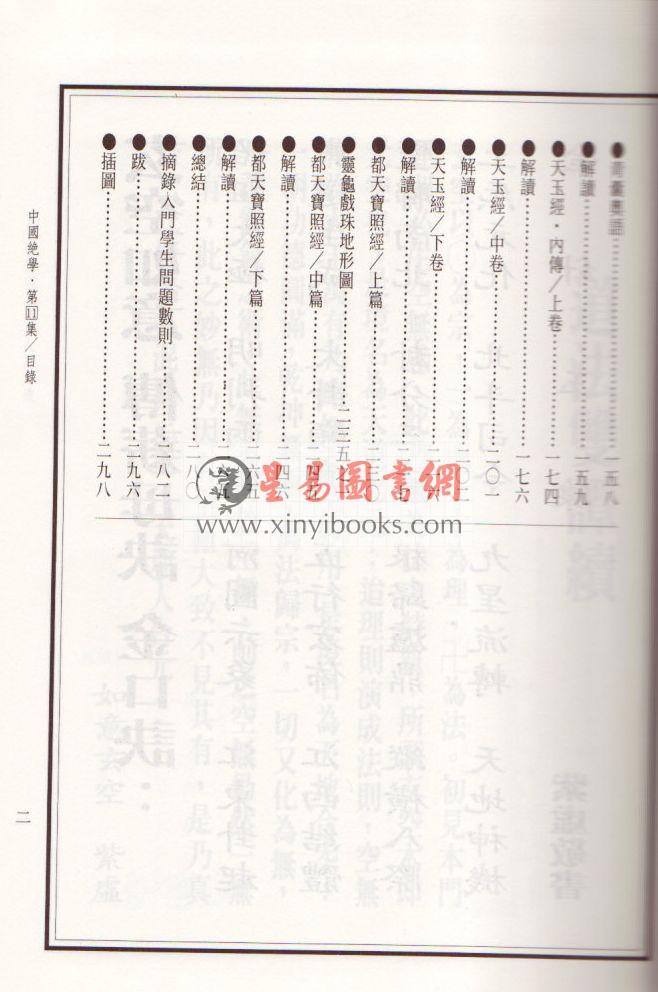 ●青囊奧語……一五八
●解讀……一五九
●天玉經・內傳/上卷……一七四
●解讀……一七六
●天玉經/中卷……二〇一
●解讀……二〇二
●天玉經/下卷……
●解讀……
●都天寶照經/上篇……
●靈龜戲珠地形圖……二三五之一
●都天寶照經/中篇……
●解讀……二四六
●都天寶照經/下篇……二六五
●解讀……
●總結……二八〇
●摘錄入門學生問題數則……二八二
●跋……二九六
●插圖……二九八
中國絕學・第11集/目錄
二
星易圖書網
www.xinyibooks.com